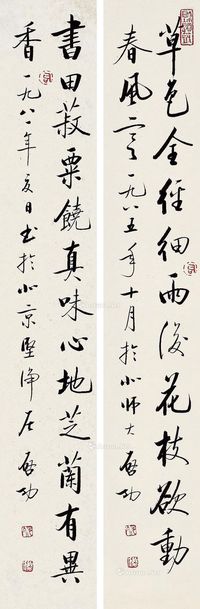 草色全經細雨後花枝欲動
春風寒 一九八五年十月於北師大 啟功
書田菽粟饒真味心地芝蘭有異
香 一九八二年夏日書於北京堅淨居 啟功